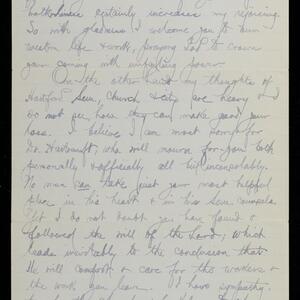 certainly increases my rejoicing.
So with gladness I welcome you to our
western life & work, praying God to crown
your coming with unfailing power.
On the other hand my thoughts of
Hartford Sem., church & city are heavy & I
do not see how they can make good your
loss. I believe I am most sorry for
Dr. who will mourn for you both
personally & officially all but inconsolably.
No man can take just your most helpful
place in his heart & in his Sem. counsels.
Yet I do not doubt you have found &
followed the will of the Lord; which
leads inevitably to the conclusion that
He will comfort & care for the workers &
the work you leave. I have sympathy,